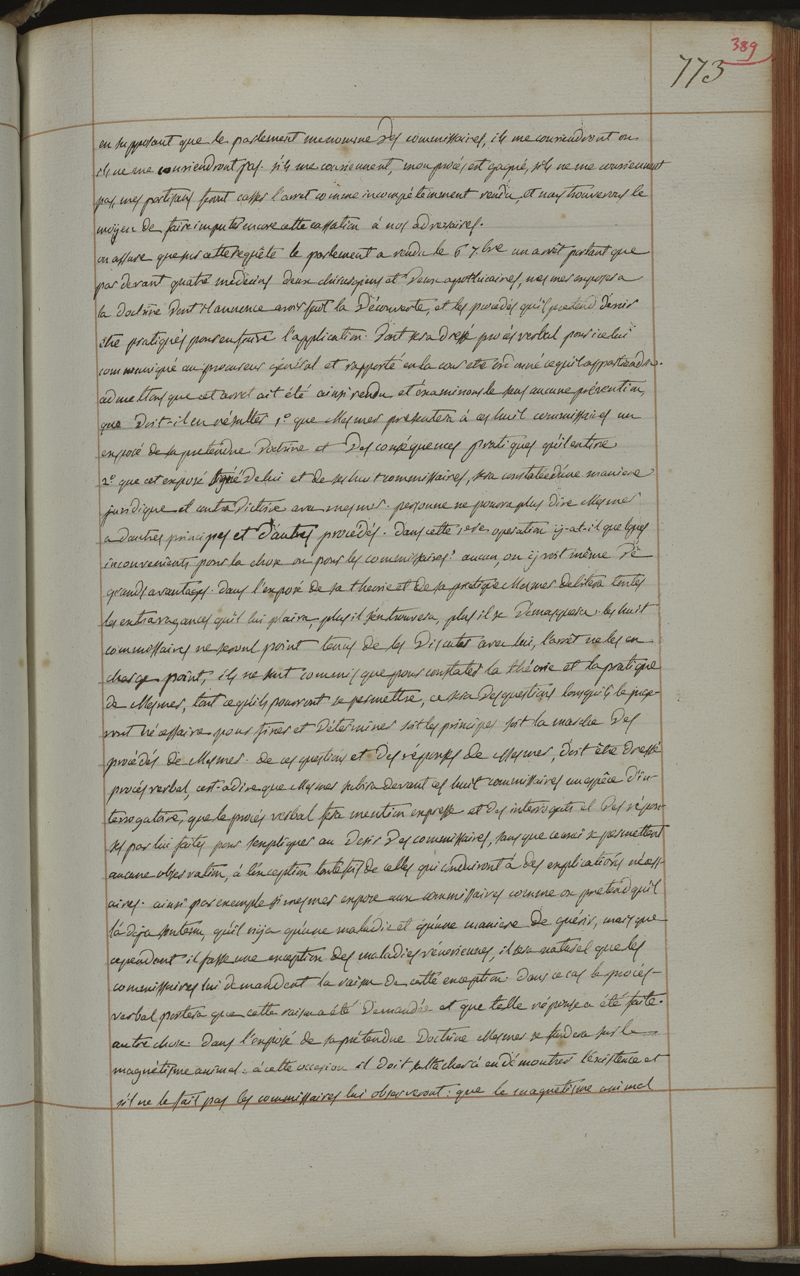 389
773
en supposant que le parlement me nomme des commissaires, ils me couriendront ou
ils ne me couriendront pas. s'ils me couriennent, mon procés est gagné, s'ils ne me couriennent
pas, mes partisans feront casser l'arret comme incompétemment rendu, et nous trouverons le
moyen de faire imputer encore cette cassation à nos adversaires.
on assure que sur cette requête le parlement a rendu le 6 7.bre un arrêt portant que
par devant quatre médecins deux chirurgiens et deux apothicaires, mesmer exposera
la doctrine dont il annonce avoir fait la Découverte, et les procédés qu'il prétend devoir
être pratiqués pour en faire l'application. Dont sera dressé procés verbal pour icelui
communiqué au procureur général et rapporté en la cour etre ordonné ce qu'il appartiendra.
admettons que cet arret ait été ainsi rendu et examinons le sans aucune prévention,
que doit-il en résulter 1.° que Mesmer présentera à ces huit commissaires un
exposé de sa pretendue doctrine et Des conséquences pratiques qu'il en tire
2.° que cet exposé signé de lui et de ses huit commissaires, sera constaté d'une maniere
juridique et contradictoire avec mesmer. personne ne pourra plus dire Mesmer
a d'autres principes et d'autres procédés. Dans cette 1.ere opération y-a-t-il quelques
inconvenients pour la chose ou pour les commissaires? aucun, on y voit même de
grands avantages. Dans l'exposé de sa theorie et de sa pratique Mesmer debitera toutes
les extravagances qu'il lui plaira, plus il s'en trouvera, plus il se Démasquera. les huit
commissaires ne seront point tenus de les Discuter avec lui, l'arrêt ne les en
charge point, ils ne sont commis que pour constater la théorie et la pratique
de Mesmer, tout ce qu'ils pourront se permettre, ce sera Des questions lorsqu'ils le juge-
ront nécessaire pour fixer et déterminer soit les principes soit la marche Des
procédés de Mesmer. de ces questions et Des réponses de Mesmer, doit être dressé
procés verbal, cest-adire que Mesmer subira devant ces huit commissaires un espêce d'in-
terrogatoire, que le procés verbal fera mention expresse et des interrogats et Des répon-
ses par lui faites pour s'expliquer au desir Des commissaires, sans que ceux ci se permettent
aucune observation, à l'exception toutefois de celles qui conduiront à des explications nécess-
aires. ainsi par exemple si mesmer expose aux commissaires comme on pretend qu'il
l'a déja soutenu, qu'il n'y a qu'une maladie et qu'une maniere de guérir, mais que
cependant il fasse une exception des maladies vénériennes, il sera naturel que les
commissaires lui demandent la raison de cette exception. dans ce cas le procés-
verbal portera que cette raison a été Demandée et que telle réponse a été faite.
autre chose. Dans l'exposé de sa prétendue Doctrine Mesmer se fondera sur le
magnétisme animal. à cette occasion il doit s'attacher à en démontrer l'existence et
s'il ne le fait pas les commissaires lui observeront: que le magnetisme animal